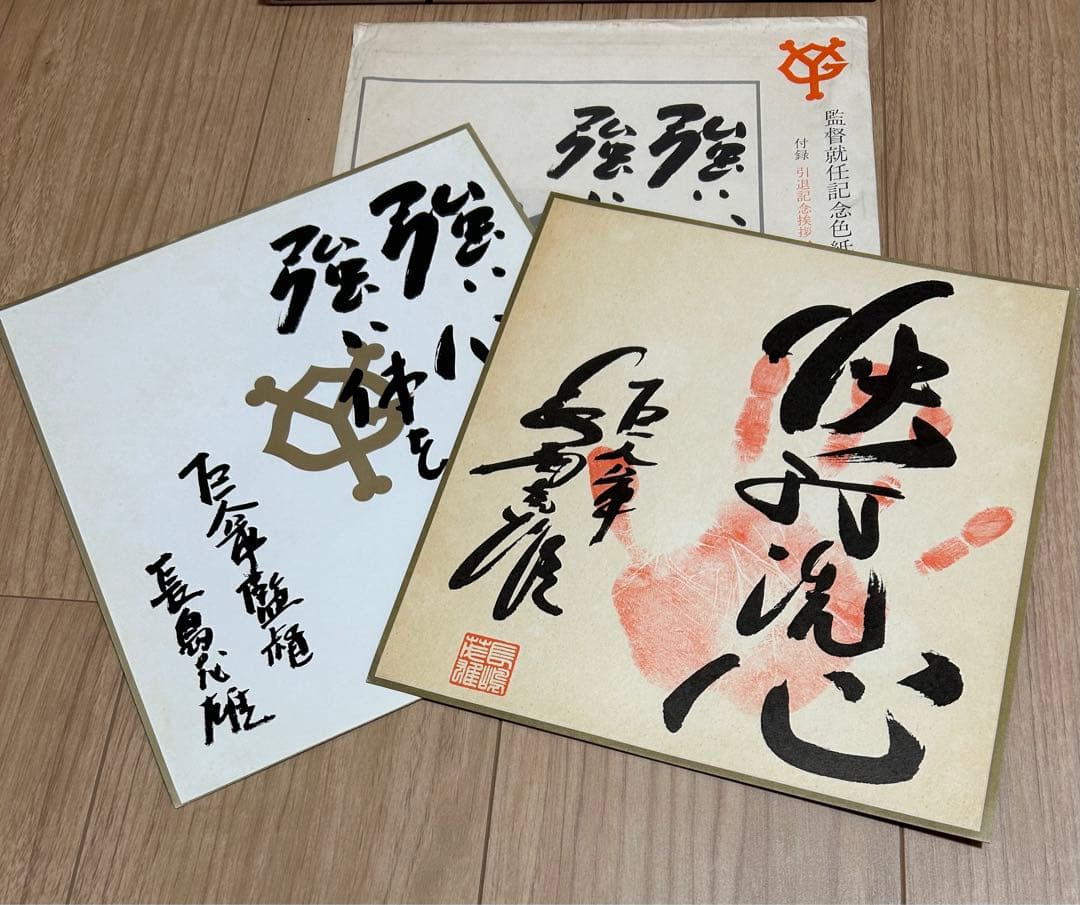 監督就任記念色紙
付録 引退記念挨拶
強い
強い
強い心
強い体を
巨人軍監督
長島茂雄
快打洗心
巨人軍
長嶋茂雄
長嶋
茂雄